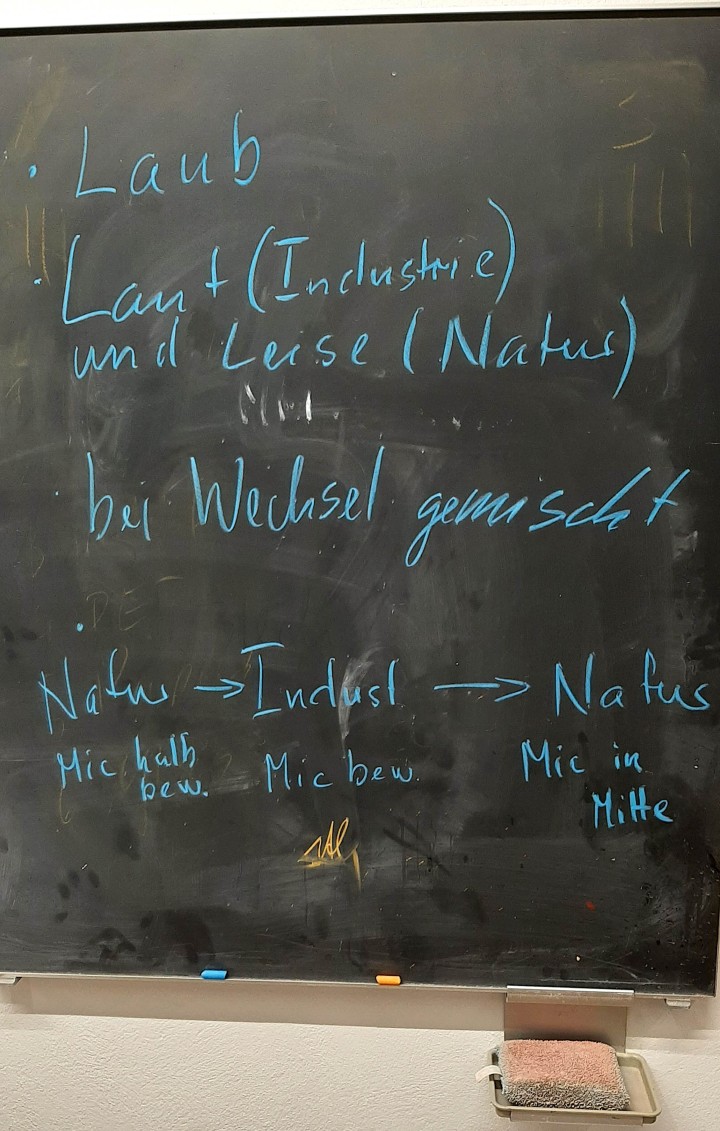 · Laub
· Laut (Industrie)
und Leise (Natur)
· bei Wechsel gemischt
·
Natur → Indust → Natur
Mic halb bew.
Mic bew.
Mic in Mitte